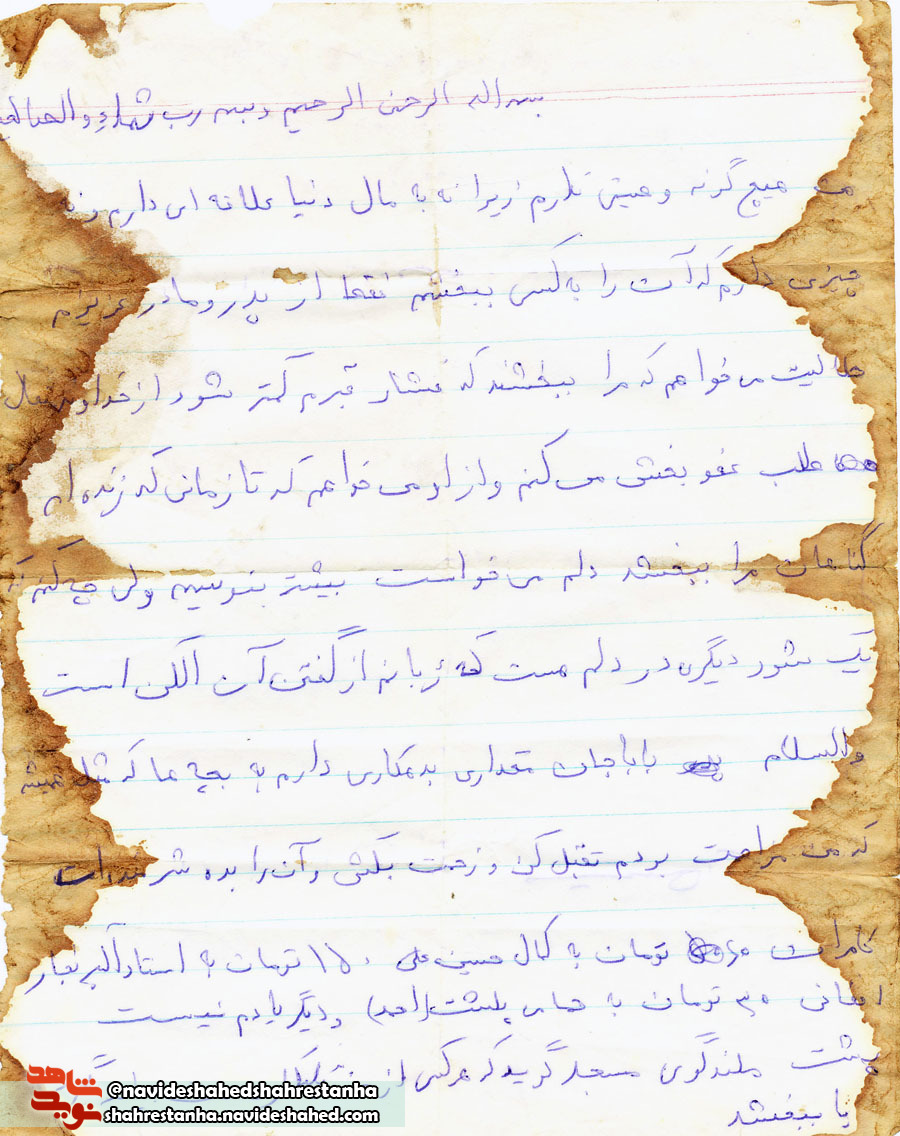 بسم اله الرحمن الرحیم وبسم رب شهداء والصالحین
من هیچ گونه وصیتی ندارم زیرا نه به مال دنیا علاقه ای دارم ونه
چیزی دارم که آن را به کسی ببخشم فقط از پدر و مادر عزیزم
حلالیت می خواهم که مرا ببخشند که فشار قبرم کمتر شود از خداوند متعال
طلب عفو بخشش می کنم و از او می خواهم که تا زمانی که زنده ام
گناهان مرا ببخشد دلم می خواست بیشتر بنویسم ولی چه کنم که
یک شور دیگری در دلم هست که زبانم از گفتن آن الکن است
والسلام باباجان مقداری بدهکاری دارم به بچه ها که مثل همیشه
که من مزاحمت بودم تقبل کن و زحمت بکش و آن را بده شرمنده ات
کامران تومان به کمال حسین علی ۱۵۰ تومان به استاد اکبر نجار
افغانی ۳۰ تومان به (احمد) و دیگر یادم نیست
پشت بلندگوی مسجد گویید که هرکس از
یا ببخشد
شاهد
نوید
@navideshahedshahrestanha
shahrestanha.navideshahed.com